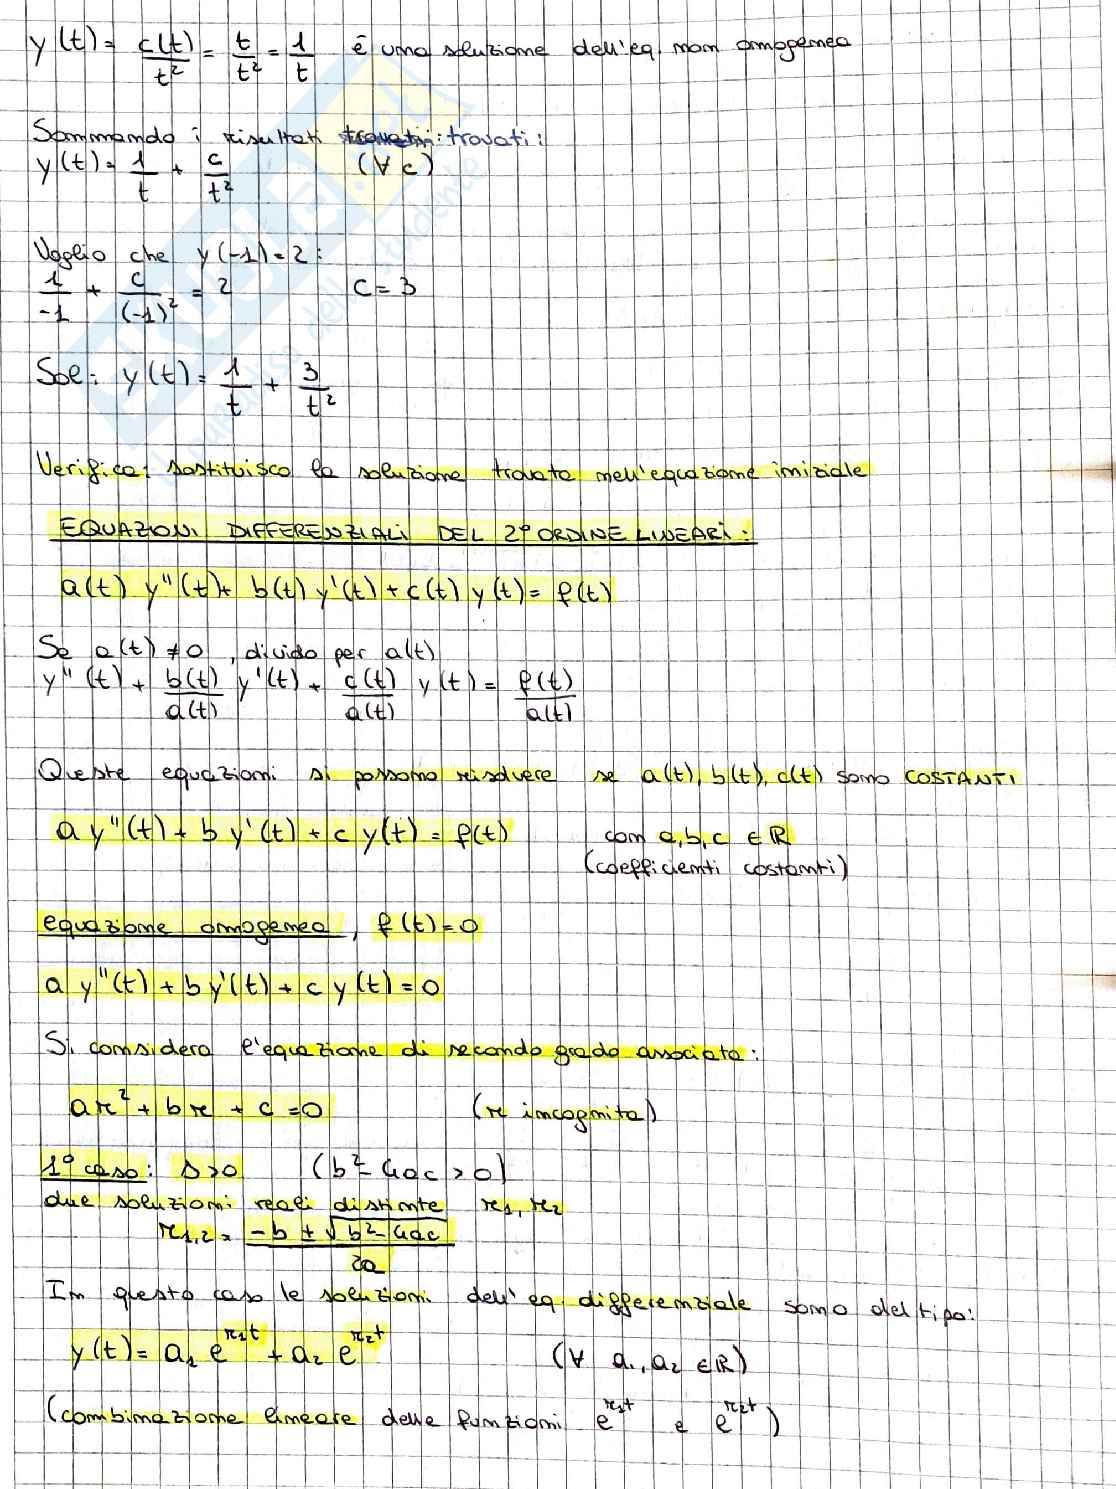 y(t) = c(t)/t² = t/t² = 1/t è una soluzione dell'eq. non omogenea
Sommando i risultati trovati:
y(t) = 1/t + c/t² (∀ c)
Voglio che y(-1) = 2:
1/-1 + c/(-1)² = 2 c = 3
Sol: y(t) = 1/t + 3/t²
Verifica: sostituisco la soluzione trovata nell'equazione iniziale
EQUAZIONI DIFFERENZIALI DEL 2° ORDINE LINEARI:
a(t) y''(t) + b(t) y'(t) + c(t) y(t) = f(t)
Se a(t) ≠ 0, divido per a(t)
y''(t) + b(t)/a(t) y'(t) + c(t)/a(t) y(t) = f(t)/a(t)
Queste equazioni si possono risolvere se a(t), b(t), c(t) sono COSTANTI
a y''(t) + b y'(t) + c y(t) = f(t) con a, b, c ∈ ℝ
(coefficienti costanti)
equazione omogenea, f(t) = 0
a y''(t) + b y'(t) + c y(t) = 0
Si considera l'equazione di secondo grado associata:
ar² + br + c = 0 (r incognita)
1° caso: Δ>0 (b² - 4ac > 0)
due soluzioni reali distinte r₁, r₂
r₁,₂ = (-b ± √(b² - 4ac))/2a
In questo caso le soluzioni dell'eq differenziale sono del tipo:
y(t) = a₁ e^(r₁t) + a₂ e^(r₂t) (∀ a₁, a₂ ∈ ℝ)
(combinazione lineare delle funzioni e^(r₁t) e e^(r₂t))